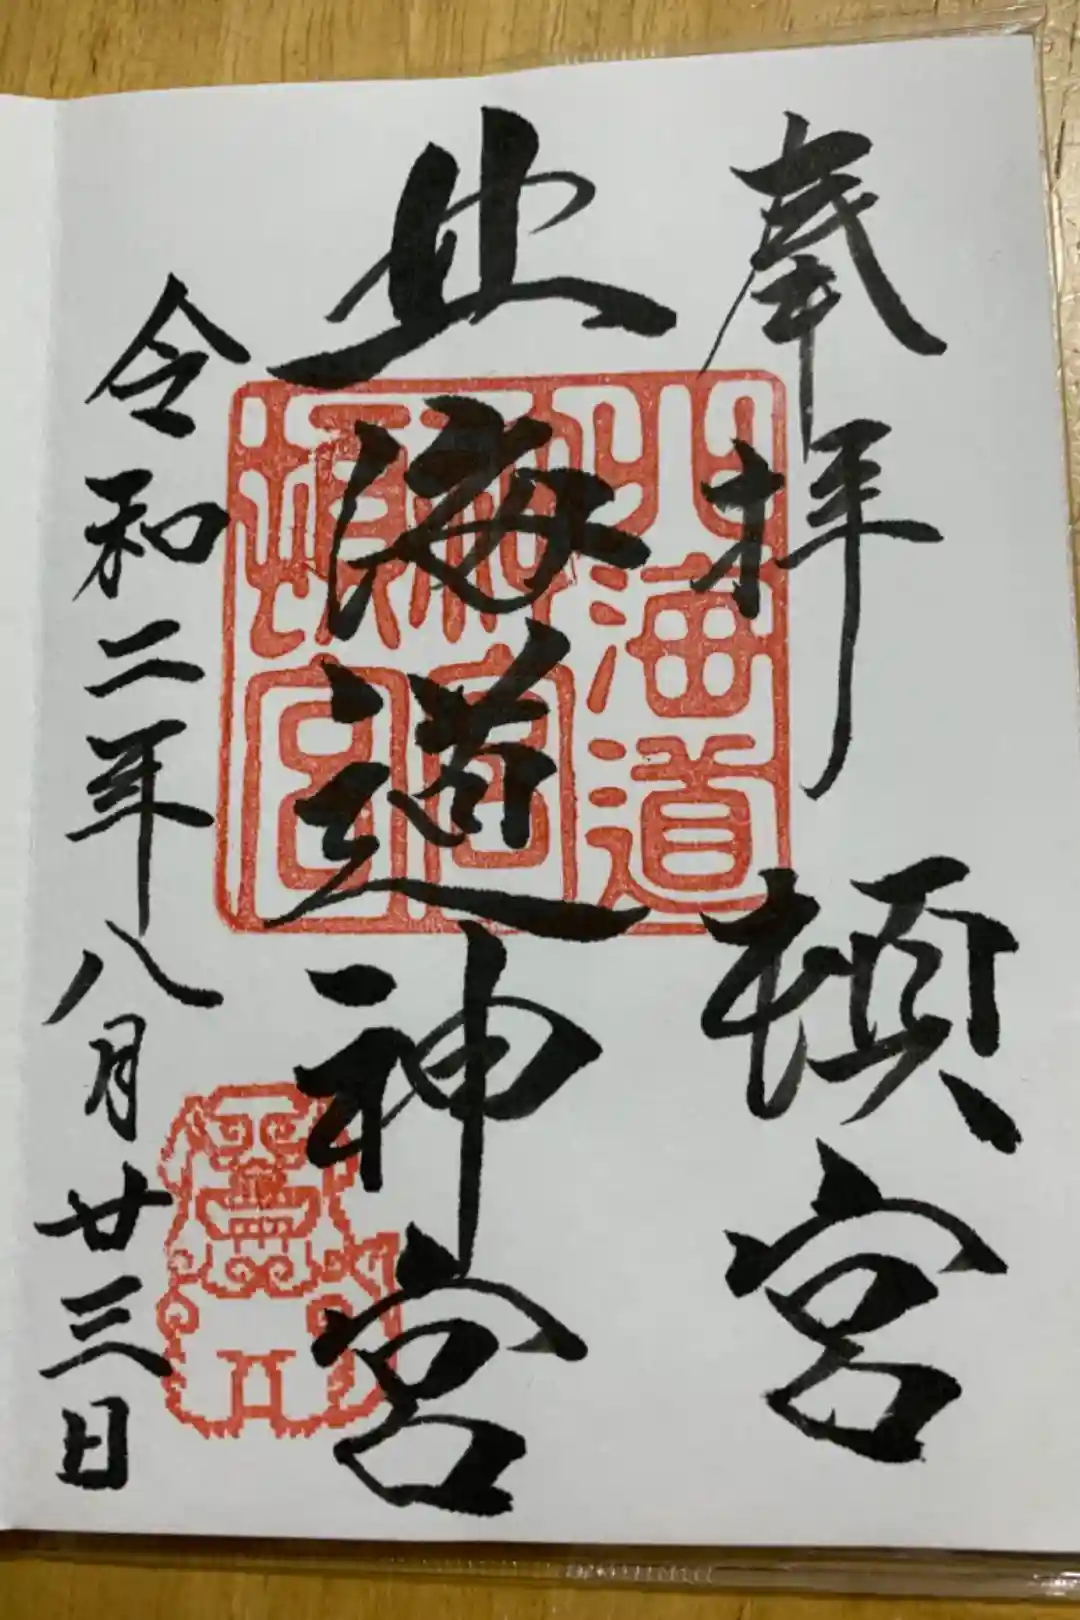 奉拝　頓宮
北海道神宮
北海道
神宮
頓宮
令和二年八月廿三日